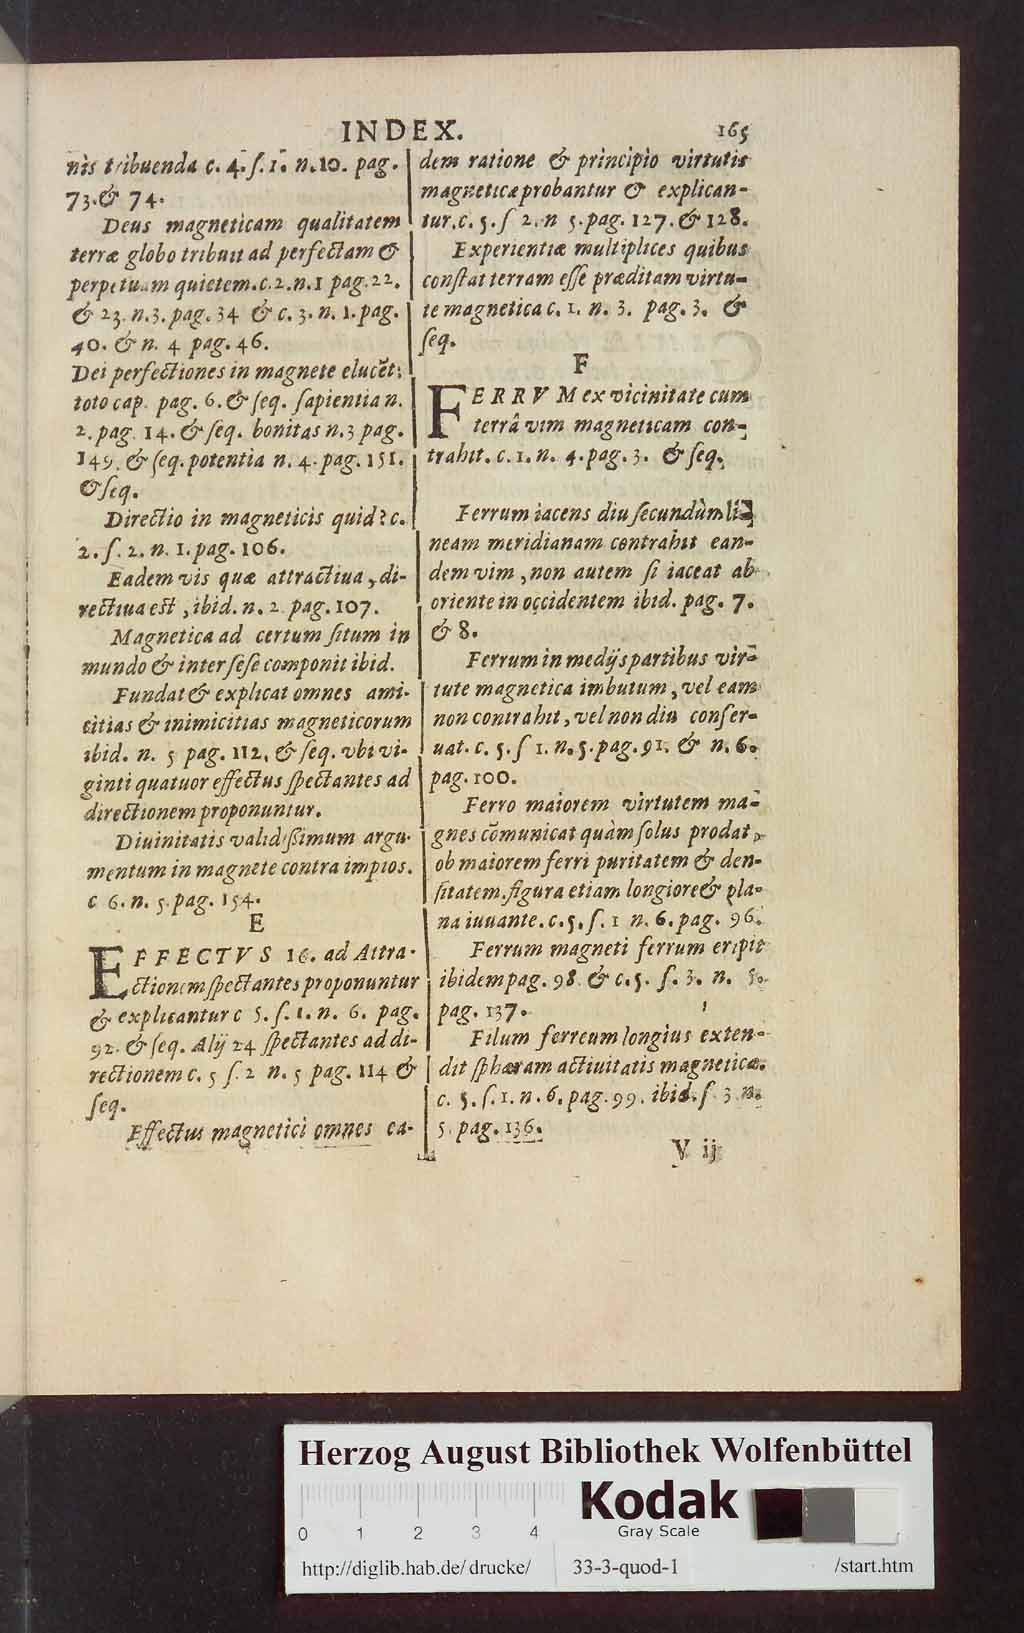 INDEX. 165
nis tribuenda c. 4. ſ. 1. n. 10. pag.
73. & 74.
Deus magneticam qualitatem
terræ globo tribuit ad perfectam &
perpetuam quietem. c. 2. n. 1 pag. 22.
& 23. n. 3. pag. 34 & c. 3. n. 1. pag.
40. & n. 4 pag. 46.
Dei perfectiones in magnete elucẽt:
toto cap. pag. 6. & ſeq. ſapientia n.
2. pag. 14. & ſeq. bonitas n. 3 pag.
149. & ſeq. potentia n. 4. pag. 151.
& ſeq.
Directio in magneticis quid? c.
2. ſ. 2. n. 1. pag. 106.
Eadem vis quæ attractiua, di-
rectiua est, ibid. n. 2. pag. 107.
Magnetica ad certum ſitum in
mundo & inter ſeſe componit ibid.
Fundat & explicat omnes ami-
citias & inimicitias magneticorum
ibid. n. 5 pag. 112. & ſeq. vbi vi-
ginti quatuor effectus ſpectantes ad
directionem proponuntur.
Diuinitatis validißimum argu-
mentum in magnete contra impios.
c 6. n. 5. pag. 154.
E
EFFECTVS 16. ad Attra-
ctionem ſpectantes proponuntur
& explicantur c 5. ſ. 1. n. 6. pag.
92. & ſeq. Alij 24 ſpectantes ad di-
rectionem c. 5 ſ. 2 n. 5 pag. 114 &
ſeq.
Effectus magnetici omnes ea-
dem ratione & principio virtutis
magneticæ probantur & explican-
tur. c. 5. ſ 2. n 5. pag. 127. & 128.
Experientiæ multiplices quibus
conſtat terram eſſe præditam virtu-
te magnetica c. 1. n. 3. pag. 3. &
ſeq.
F
FERRVM ex vicinitate cum
terrâ vim magneticam con-
trahit. c. 1. n. 4. pag. 3. & ſeq.
Ferrum iacens diu ſecundùm li-
neam meridianam contrahit ean-
dem vim, non autem ſi iaceat ab
oriente in occidentem ibid. pag. 7.
& 8.
Ferrum in medijs partibus vir-
tute magnetica imbutum, vel eam
non contrahit, vel non diu conſer-
uat. c. 5. ſ 1. n. 5. pag. 91. & n. 6.
pag. 100.
Ferro maiorem virtutem ma-
gnes cõmunicat quàm ſolus prodat,
ob maiorem ferri puritatem & den-
ſitatem. figura etiam longiore & pla-
na iuuante. c. 5. ſ. 1 n. 6. pag. 96.
Ferrum magneti ferrum eripit
ibidem pag. 98. & c. 5. ſ. 3. n. 5.
pag. 137.
Filum ferreum longius exten-
dit ſphæram actiuitatis magneticæ.
c. 5. ſ. 1. n. 6. pag. 99. ibid. ſ. 3. n.
5. pag. 136.
V ij
Herzog August Bibliothek Wolfenbüttel
0 1 2 3 4
Kodak
Gray Scale
http://diglib.hab.de/ drucke/ 33-3-quod-1 /start.htm